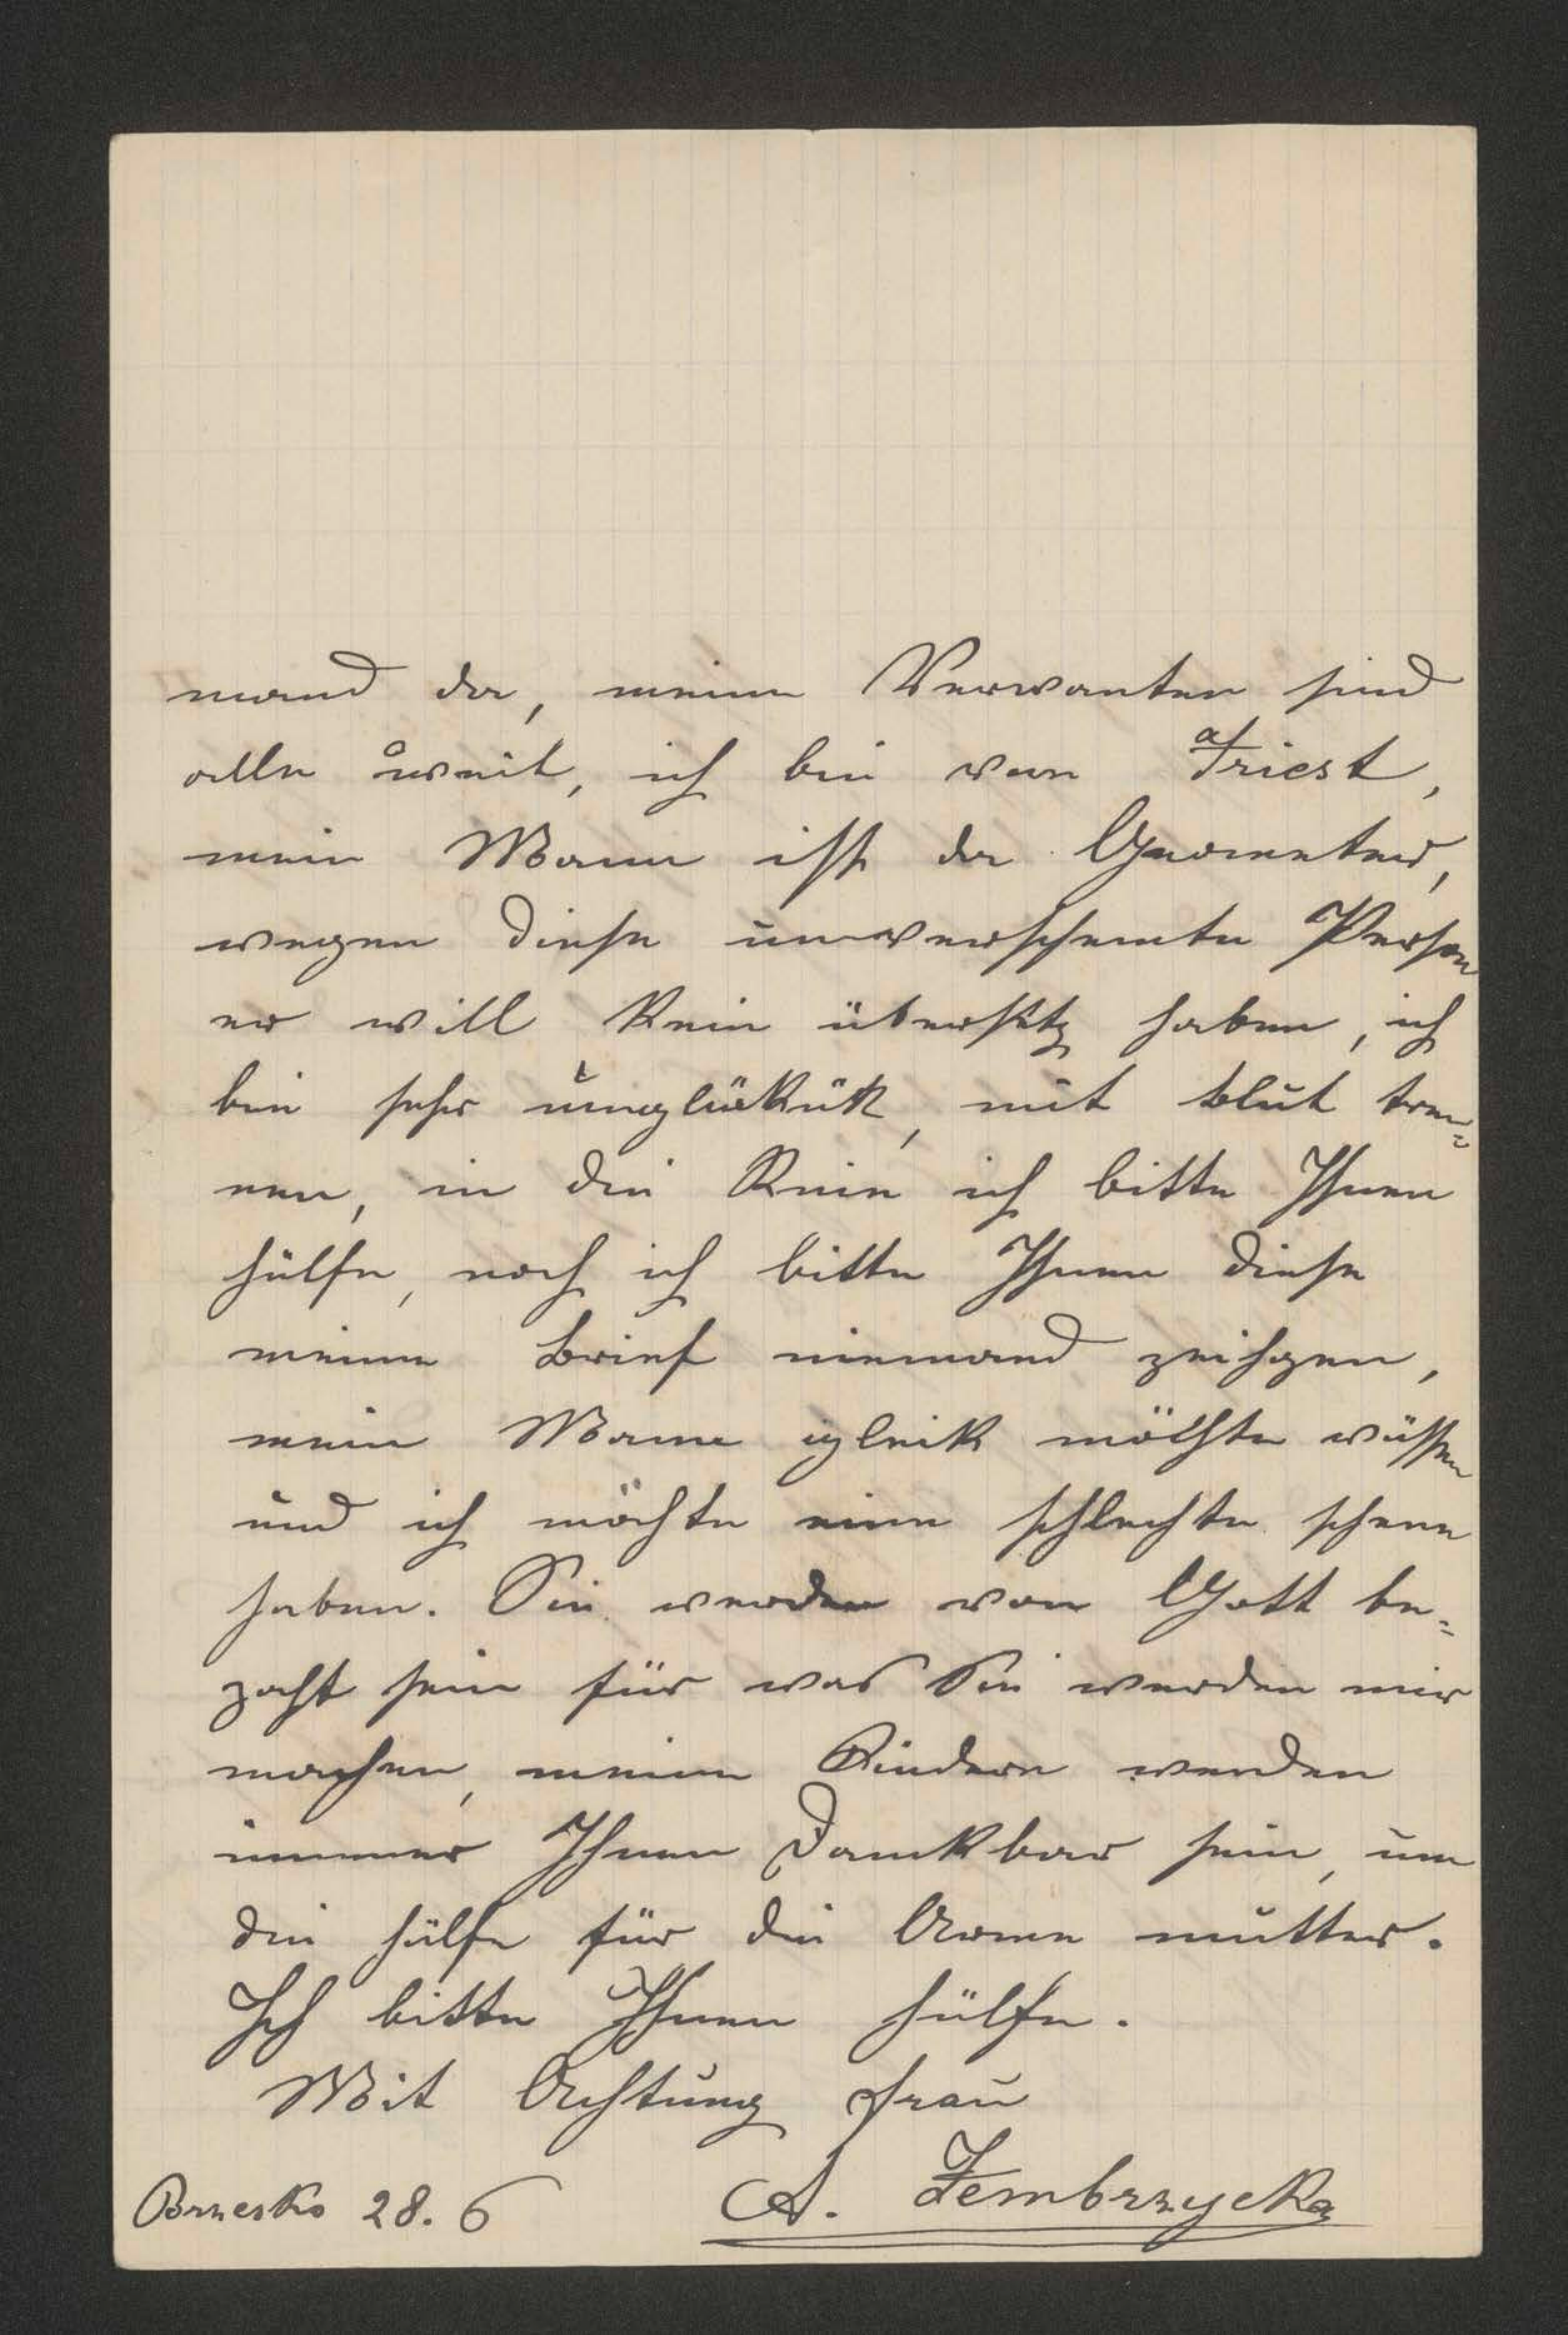 mand da, meine Verwanten sind
alle weit, ich bin von Triest,
mein Mann ist da Geometer,
wegen diese unverschemte Person
er will kein übersetz haben, ich
bin sehr unglükük, mit blut tre=
nen, in die Knie ich bitte Ihnen
hülfe, noch ich bitte Ihnen diese
meine Brief niemand zeihgen,
mein Mane igleik möchte wüssen
und ich möchte eine schlechte schene
haben. Sie werden von Gott be=
zaht sein für was Sie werden mir
machen, meine Kindern werden
immer Ihnen Dankbar sein, um
die hülfe für die Arme mutter.
Ich bitte Ihnen hülfe.
Mit Achtung frau
A. Zembrzycka
Brzesko 28. 6